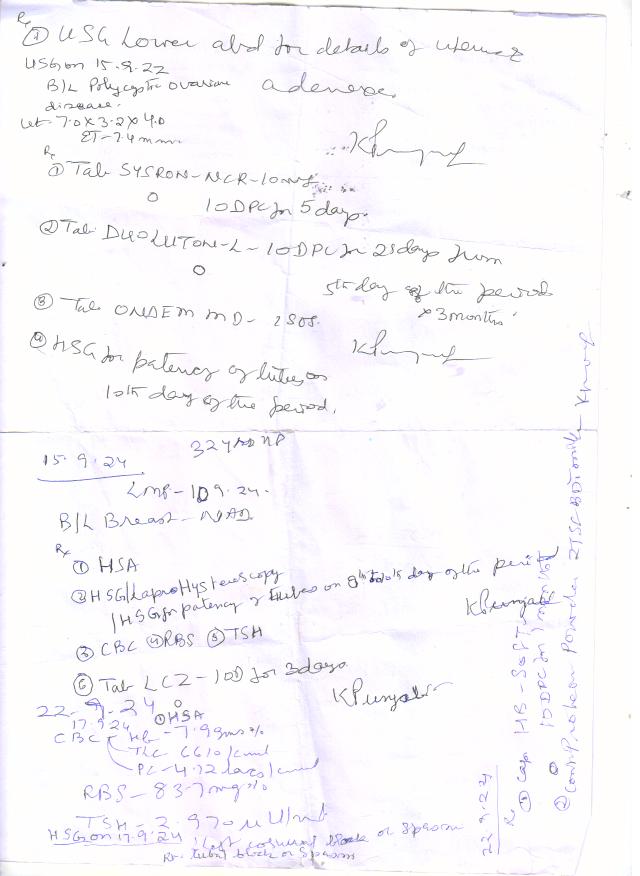 Rx
① USG Lower abd for details of uterus &
adenexa.
USG on 15.9.22
B/L Polycystic ovarian
disease.
Ut- 7.0 x 3.2 x 4.0
ET- 7.4 mm
Rx
① Tab SYSRON-NCR-10mg
10DPC for 5 days.
② Tab. DUOLUTON-L- 10DPC for 21 days from
5th day of the period
x 3 months
③ Tab ONDEM MD- SOS.
④ HSG for patency of tubes on
10th day of the period.
15.9.24
32 y
LMP- 10 9.24-
B/L Breast- NAD
Rx
① HSA
② HSG/Laprohysteroscopy
/HSG for patency of tubes on 8th to 10th day of the period
K Punjabi
③ CBC ④ RBS ⑤ TSH
⑥ Tab LCZ- 10D for 3 days.
K Punjabi
22.9.24
① HSA
17.9.24
CBC- Hb- 7.9 gms%
TLC 6610/cmm
PC- 4.72 lacs/cmm
RBS- 83.7 mg%
TSH- 2.970 µIU/ml
HSG on 17.9.24 Left cornual block or spasm
Rt. tubal block or spasm
22.9.24
Rx
① Cap HB-SOFT
10DPC for 1 month
② Protein Powder 2TSF BD milk